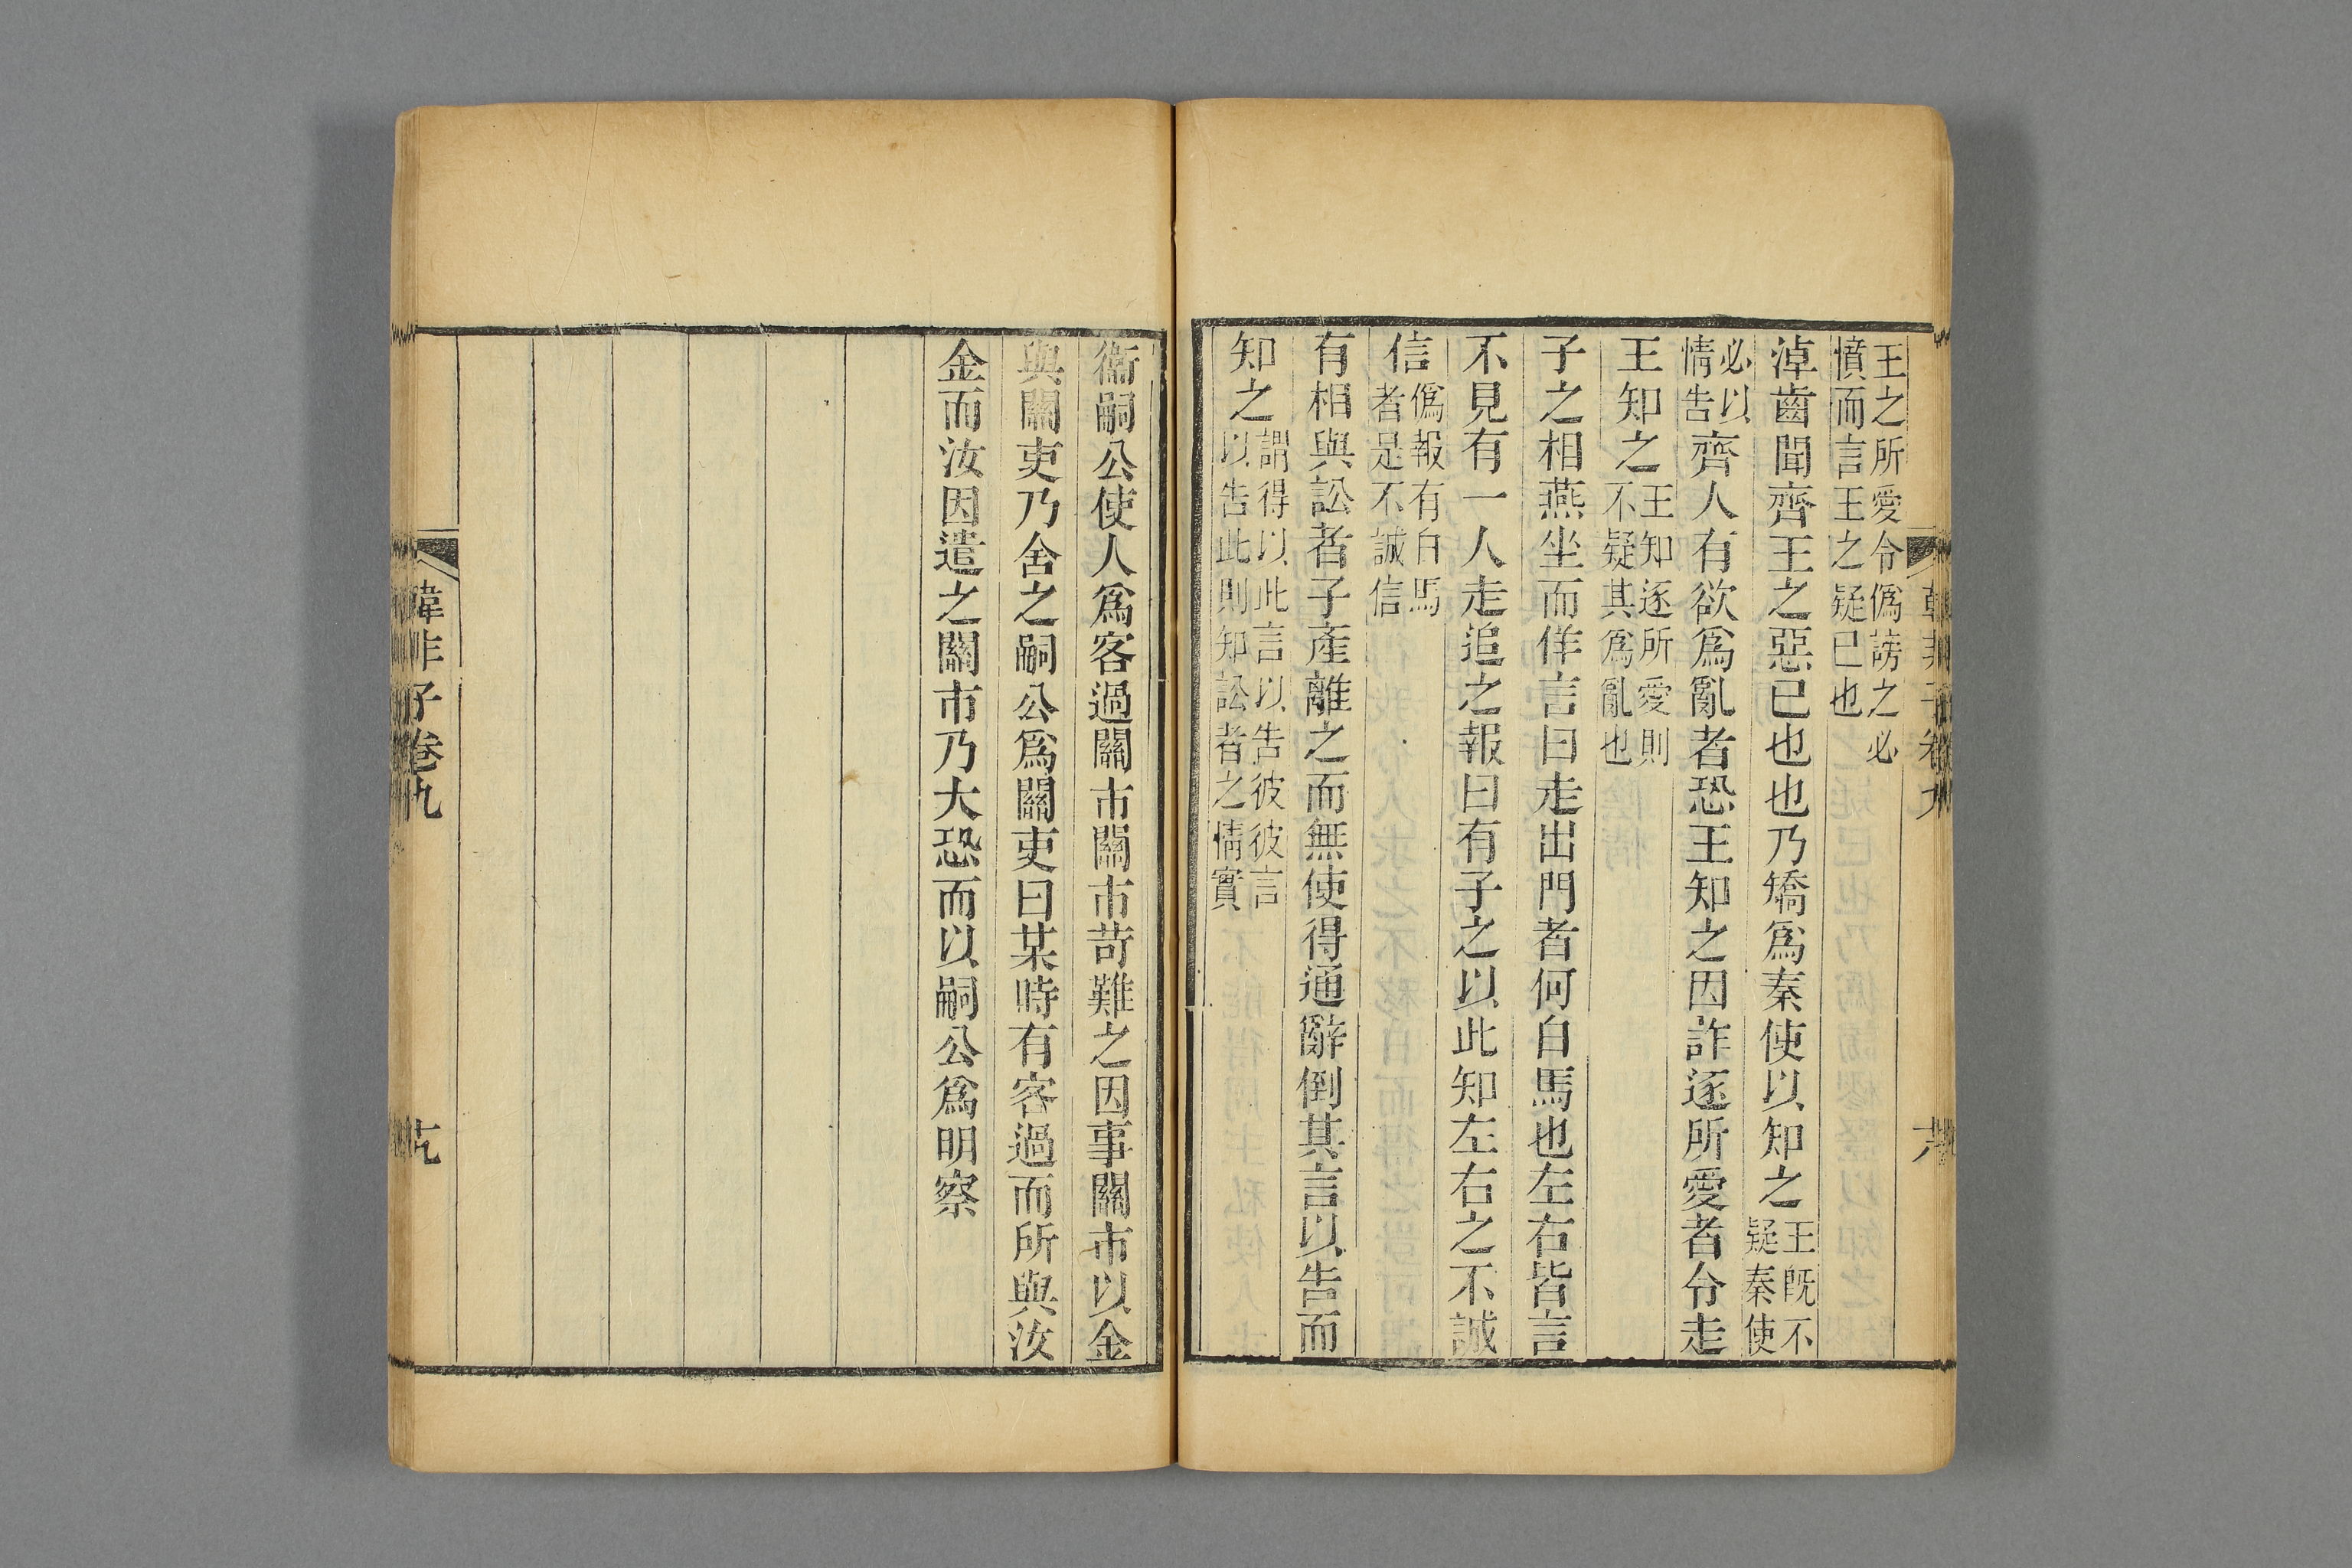 韓非子卷九
王之所愛令僞謗之必
憤而言王之疑已也
淖齒聞齊王之惡已也也乃矯爲秦使以知之王既不
疑秦使
必以
情告齊人有欲爲亂者恐王知之因詐逐所愛者令走
王知之王知逐所愛則
不疑其爲亂也
子之相燕坐而佯言曰走出門者何白馬也左右皆言
不見有一人走追之報曰有子之以此知左右之不誠
信僞報有白馬
者是不誠信
有相與訟者子產離之而無使得通辭倒其言以告而
知之謂得以此言以告彼彼言
以告此則知訟者之情實
衞嗣公使人爲客過關市關市苛難之因事關市以金
與關吏乃舍之嗣公爲關吏曰某時有客過而所與汝
金而汝因遣之關市乃大恐而以嗣公爲明察
韓非子卷九